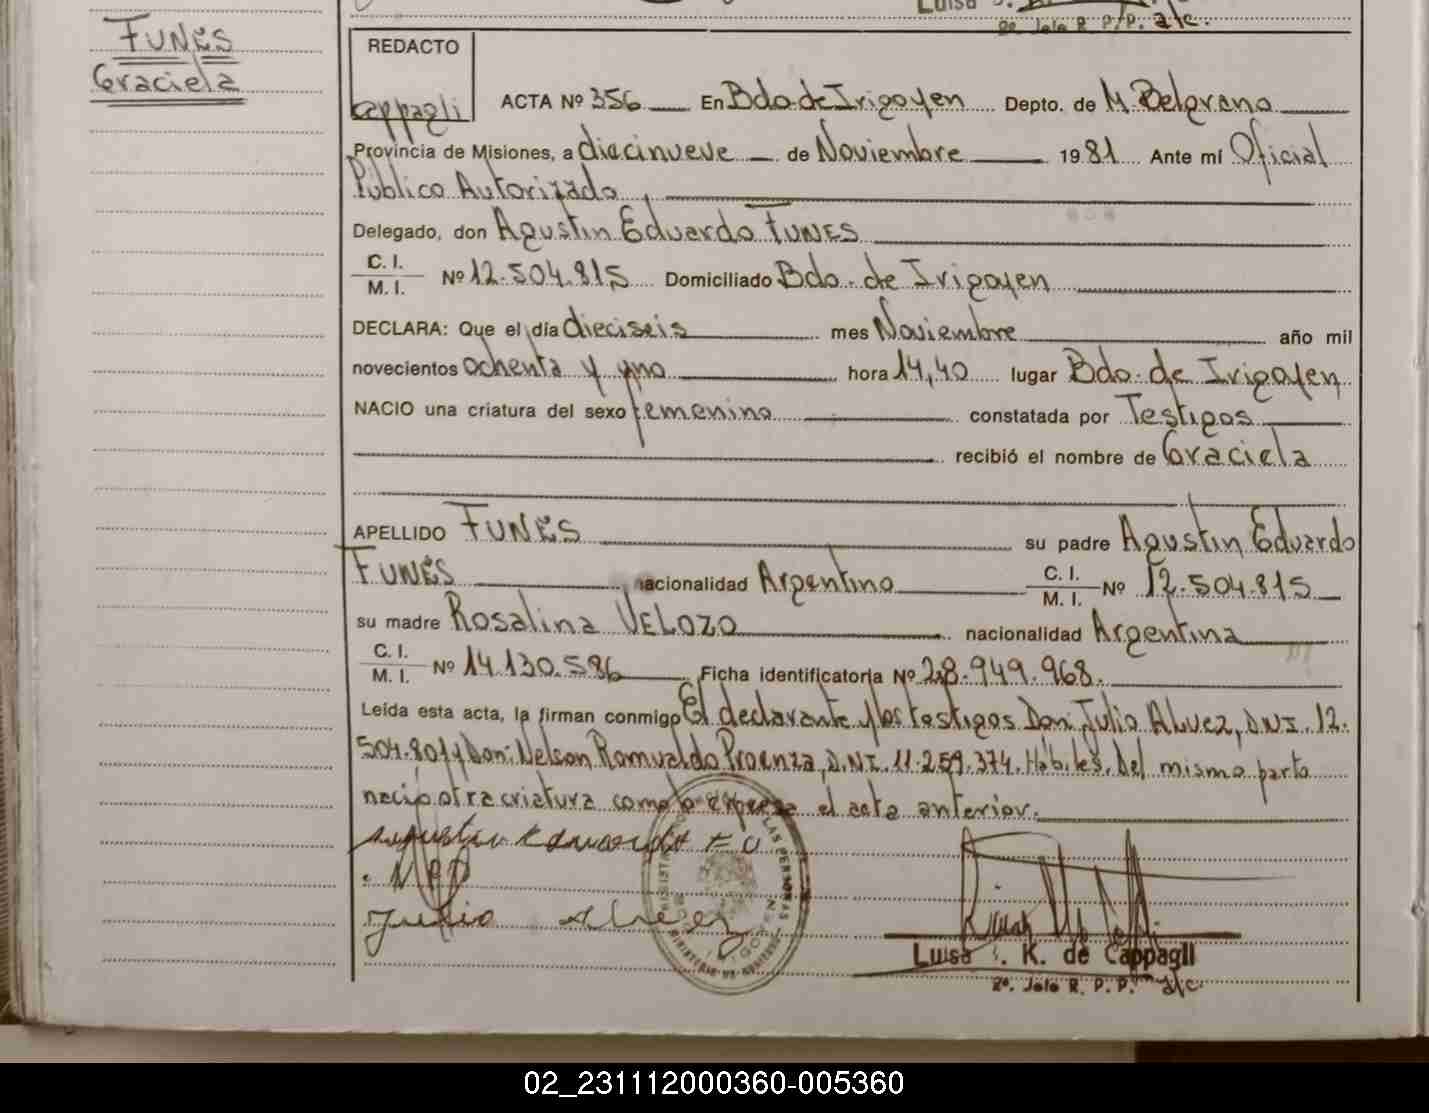 Luisa J.
2º. Jefe R. P/P. a/c.
FUNES
Graciela
REDACTO
Cappagli
ACTA Nº 356 En Bdo. de Irigoyen Depto. de M. Belgrano
Provincia de Misiones, a diecinueve de Noviembre 1981 Ante mí Oficial
Público Autorizado,
Delegado, don Agustin Eduardo FUNES
C. I.
M. I. Nº 12.504.815 Domiciliado Bdo. de Irigoyen
DECLARA: Que el día dieciseis mes Noviembre año mil
novecientos ochenta y uno hora 14,40 lugar Bdo. de Irigoyen
NACIO una criatura del sexo femenino constatada por Testigos
recibió el nombre de Graciela
APELLIDO FUNES su padre Agustin Eduardo
FUNES nacionalidad Argentino C. I. M. I. Nº 12.504.815
su madre Rosalina VELOZO nacionalidad Argentina
C. I.
M. I. Nº 14.130.586 Ficha identificatoria Nº 28.949.968.
Leída esta acta, la firman conmigo El declarante y los testigos Don: Julio Alvez, D.N.I. 12.
504.801 y Don: Nelson Romualdo Proenza, D.N.I. 11.259.374. Hábiles. Del mismo parto
nacio otra criatura como lo expresa el acta anterior.
Agustin Eduardo FU
NES
Julio Alvez
LAS PERSONAS
Luisa J. K. de Cappagli
2º. Jefe R. P. P. a/c.
02_231112000360-005360